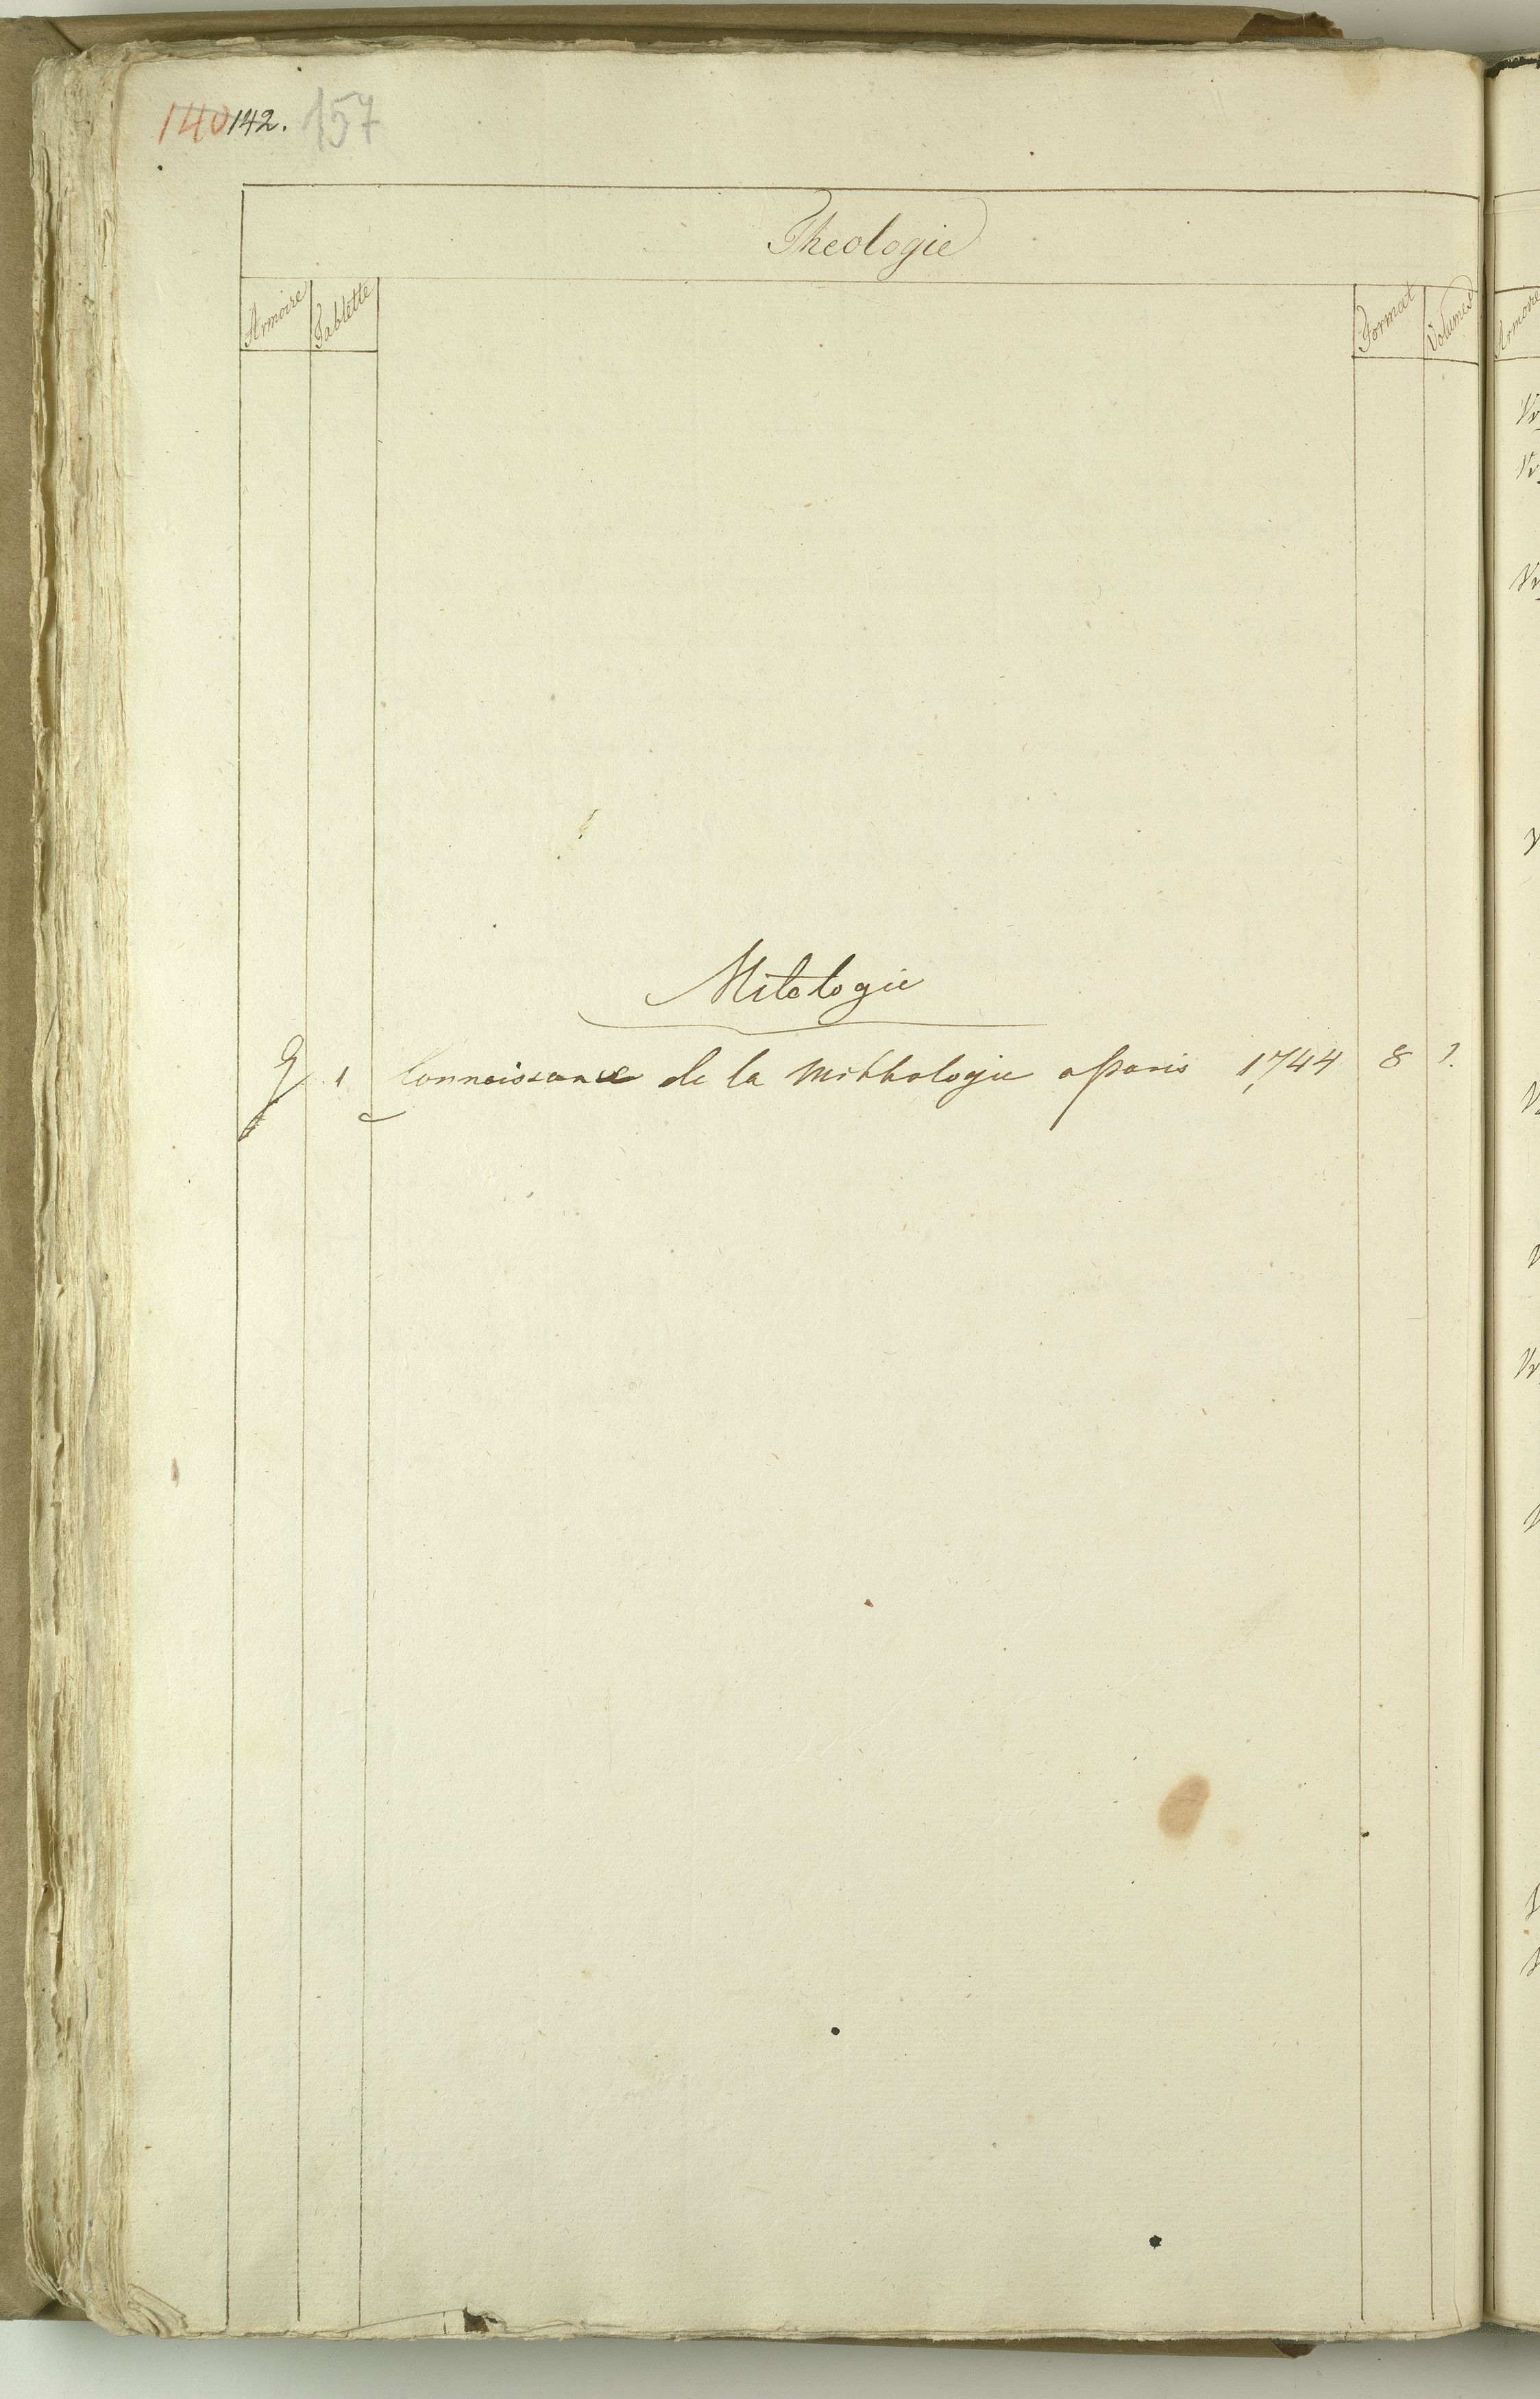 140 142. 157
Theologie
Armoire Tablette Format Volumes Armoire
Mitologie
1 Connaissance de la Mithologie a Paris 1744 8 1.